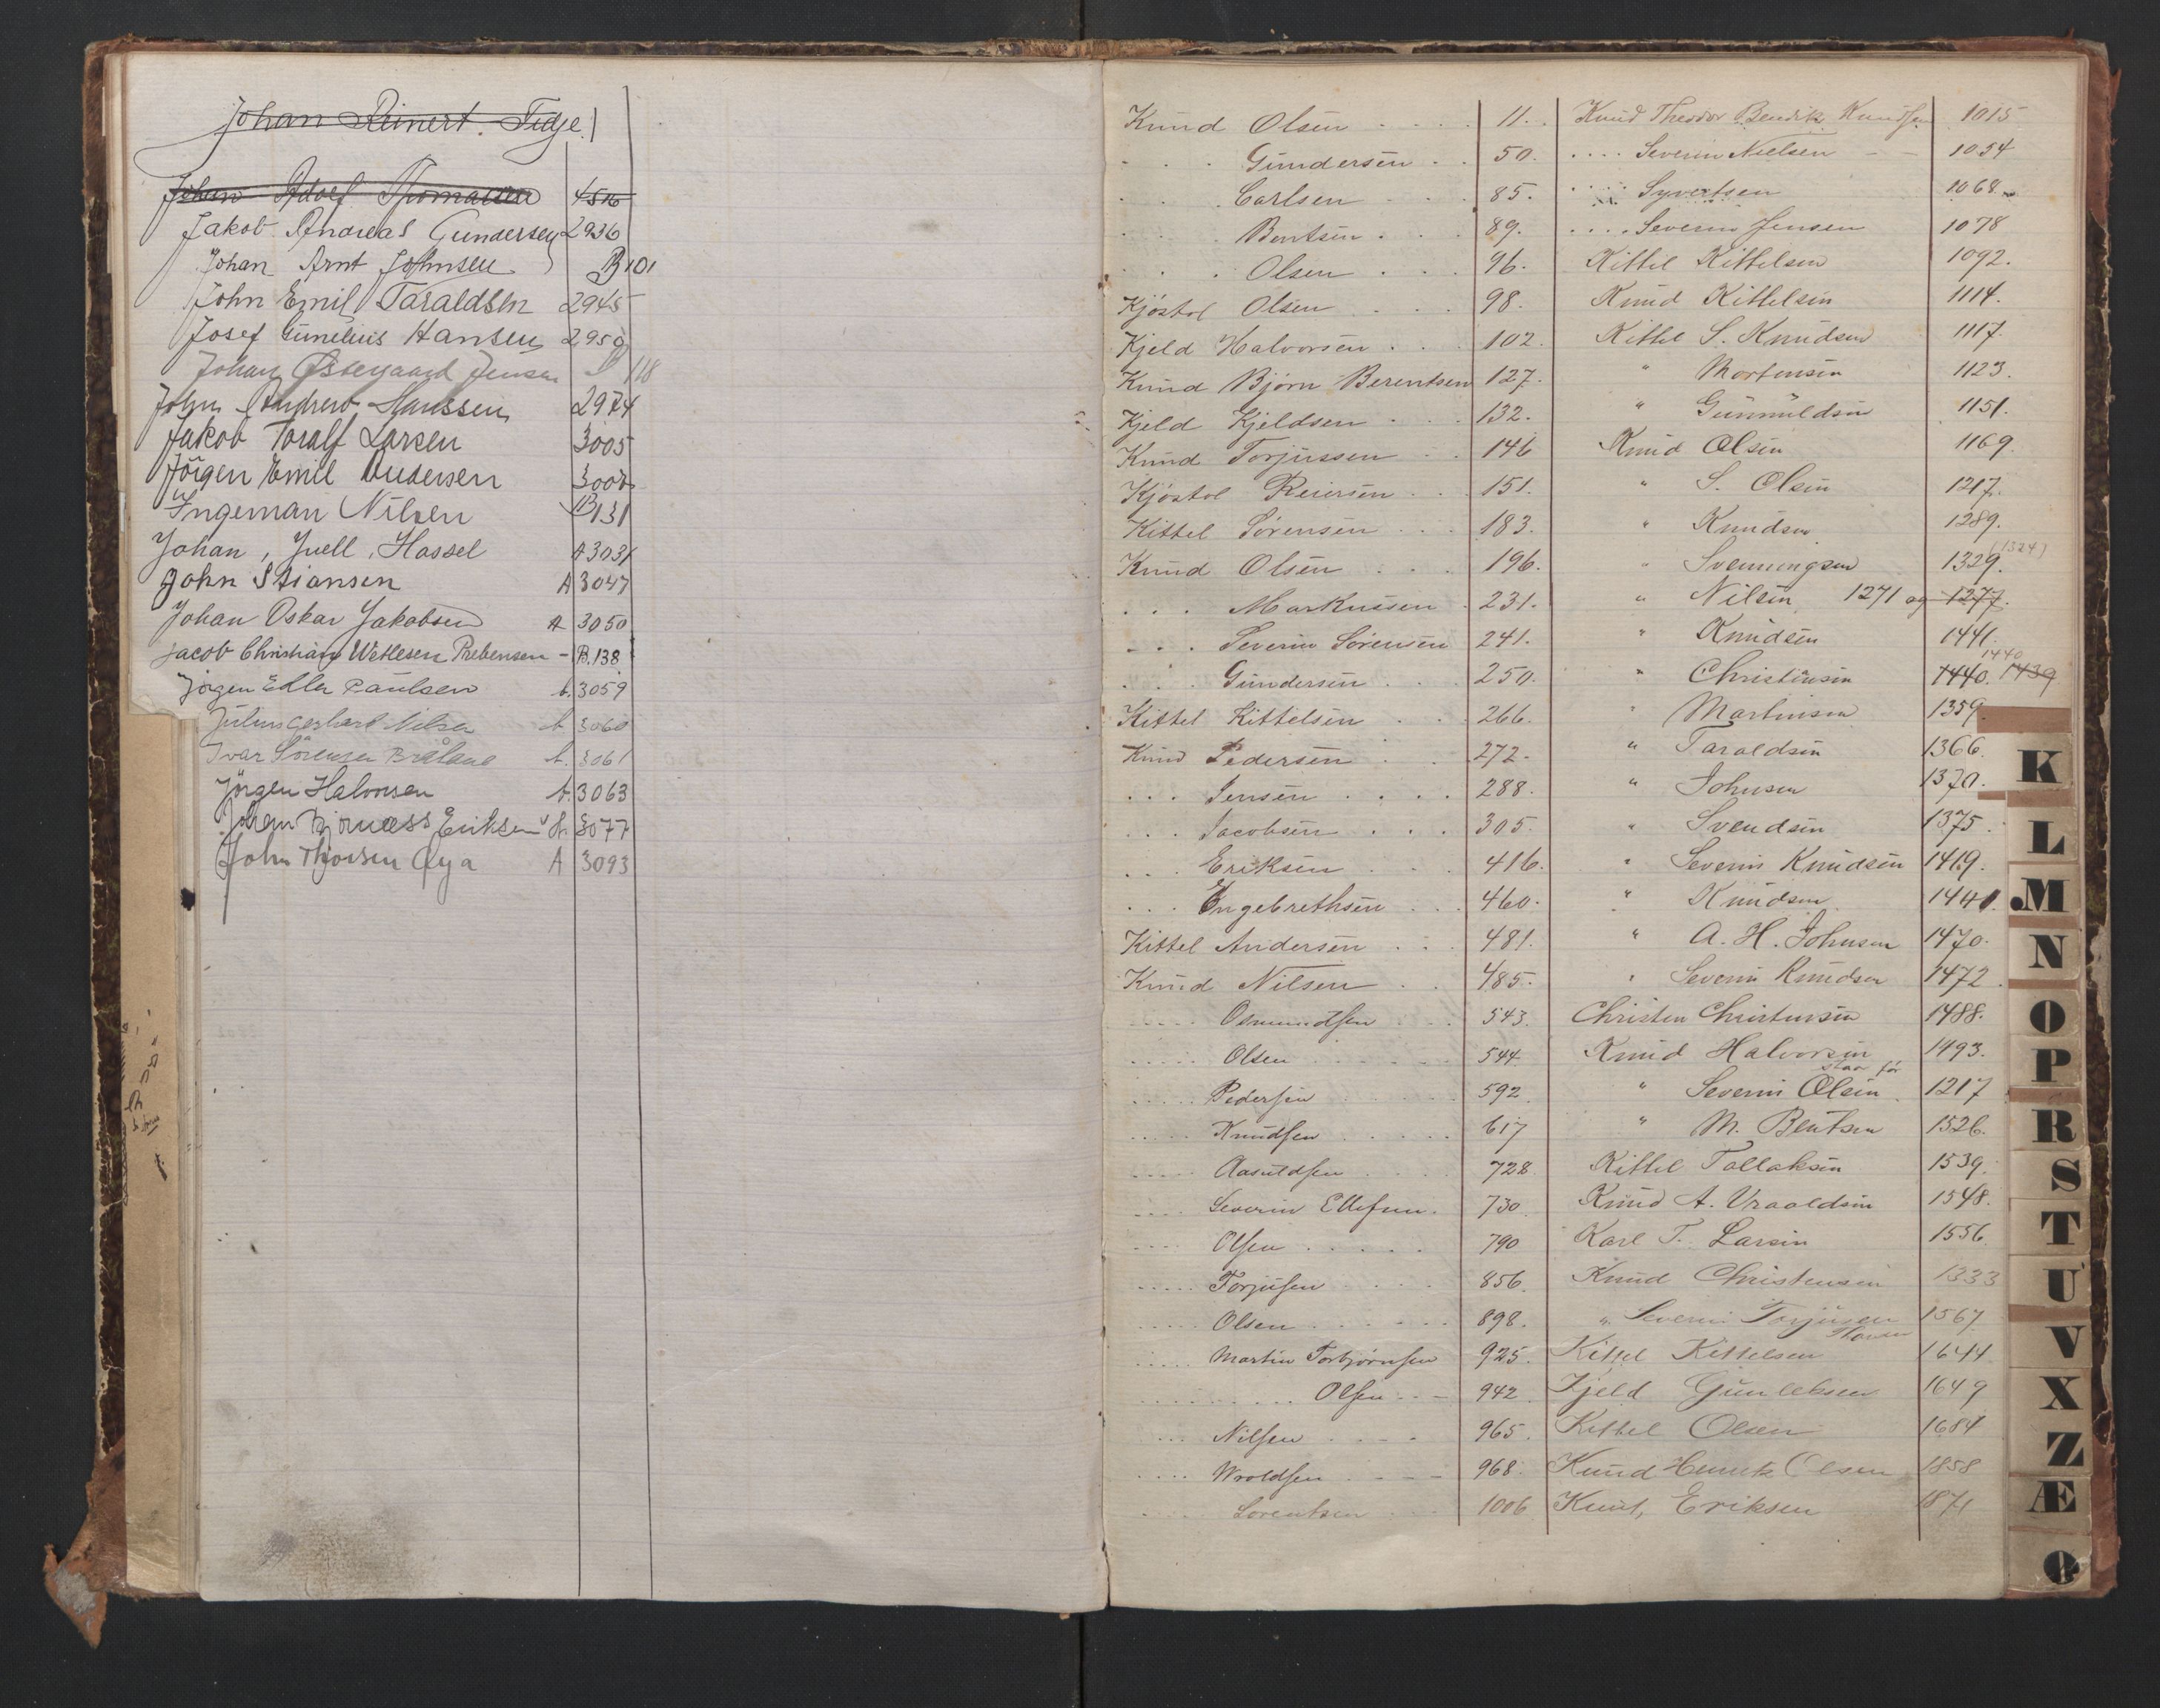 Johan Reinert. Tidje
Johan Adolf Thomassen 4516
Jakob Andreas Gundersen 2936
Johan Arnt Johnsen B 101
John Emil Taraldsen 2945
Josef Gunelius Hansen 2959
Johan Østegaard Jensen 118
John Andrew Hanssen 2974
Jakob Toralf Larsen 3005
Jörgen Emil Andersen 3007
Ingeman Nilsen B 131
Johan, Juell, Hassel A 3031
John Stiansen A 3047
Johan Oskar Jakobsen A 3050
Jacob Christian Wetlesen Prebensen - B. 138
Jörgen Edler Paulsen A. 3059
Julius Gerhard Nilsen A 3060
Ivar Sörensen Bråtane A. 3061
Jörgen Halvorsen A. 3063
Johan Bjornæss Eriksen A. 3077
John Thjorsen Øya A 3093
Knud Olsen 11.
Gundersen 50.
Carlsen 85.
Bentsen 89.
Olsen 96.
Kjöstol Olsen 98.
Kjeld Halvorsen 102.
Knud Bjørn Berentsen 127.
Kjeld Kjeldsen 132.
Knud Torjussen 146
Kjöstol Reiersen 151.
Kittel Sörensen 183.
Knud Olsen 196.
Markussen 231.
Severin Sörensen 241.
Gundersen 250.
Kittel Kittelsen 266.
Knud Pedersen 272.
Jensen 288.
Jacobsen 305.
Eriksen 416.
Engebrethsen 460.
Kittel Andersen 481.
Knud Nilsen 485.
Osmundsen 543.
Olsen 544
Pedersen 592
Knudsen 617
Aasuldsen 728
Severin Ellefsen. 730
Olsen 790
Torjusen 856
Olsen 898.
Martin Torbjørnsen 925.
Olsen 942
Nilsen 965.
Wroldsen 968.
Lorentsen 1006
Knud Theodor Bendik Knudsen 1015
Severin Nielsen 1054
Syvertsen 1068
Severin Jensen 1078
Kittel Kittelsen 1092.
Knud Kittelsen 1114.
Kittel S. Knudsen 1117.
" Mortensen 1123.
" Gunnuldsen 1151.
Knud Olsen 1169.
" S. Olsen 1217.
" Knudsen 1289.
" Svenningsen 1329. (1324)
" Nilsen 1271 og 1277.
" Knudsen 1441.
" Christensen 1440. 1439 1440
" Martinsen 1359
" Taraldsen 1366.
" Johnsen 1370.
" Svendsen 1375.
" Severin Knudsen 1419.
" Knudsen 1441.
" A. H. Johnsen 1470.
" Severin Knudsen 1472
Christen Christensen 1488.
Knud Halvorsen 1493.
staar før
" Severin Olsen 1217
" M. Bentsen 1526.
Kittel Tallaksen 1539.
Knud A. Vraaldsen 1548.
Karl T. Larsen 1556
Knud Christensen 1333
" Severin Torjusen 1567
Kittel Kittelsen 1644
Kjeld Gunleksen 1649
Kittel Olsen 1684
Knud Henrik Olsen 1858
Knut, Eriksen 1871
K
L
M
N
O
P
R
S
T
U
V
X
Z
Æ
Ø